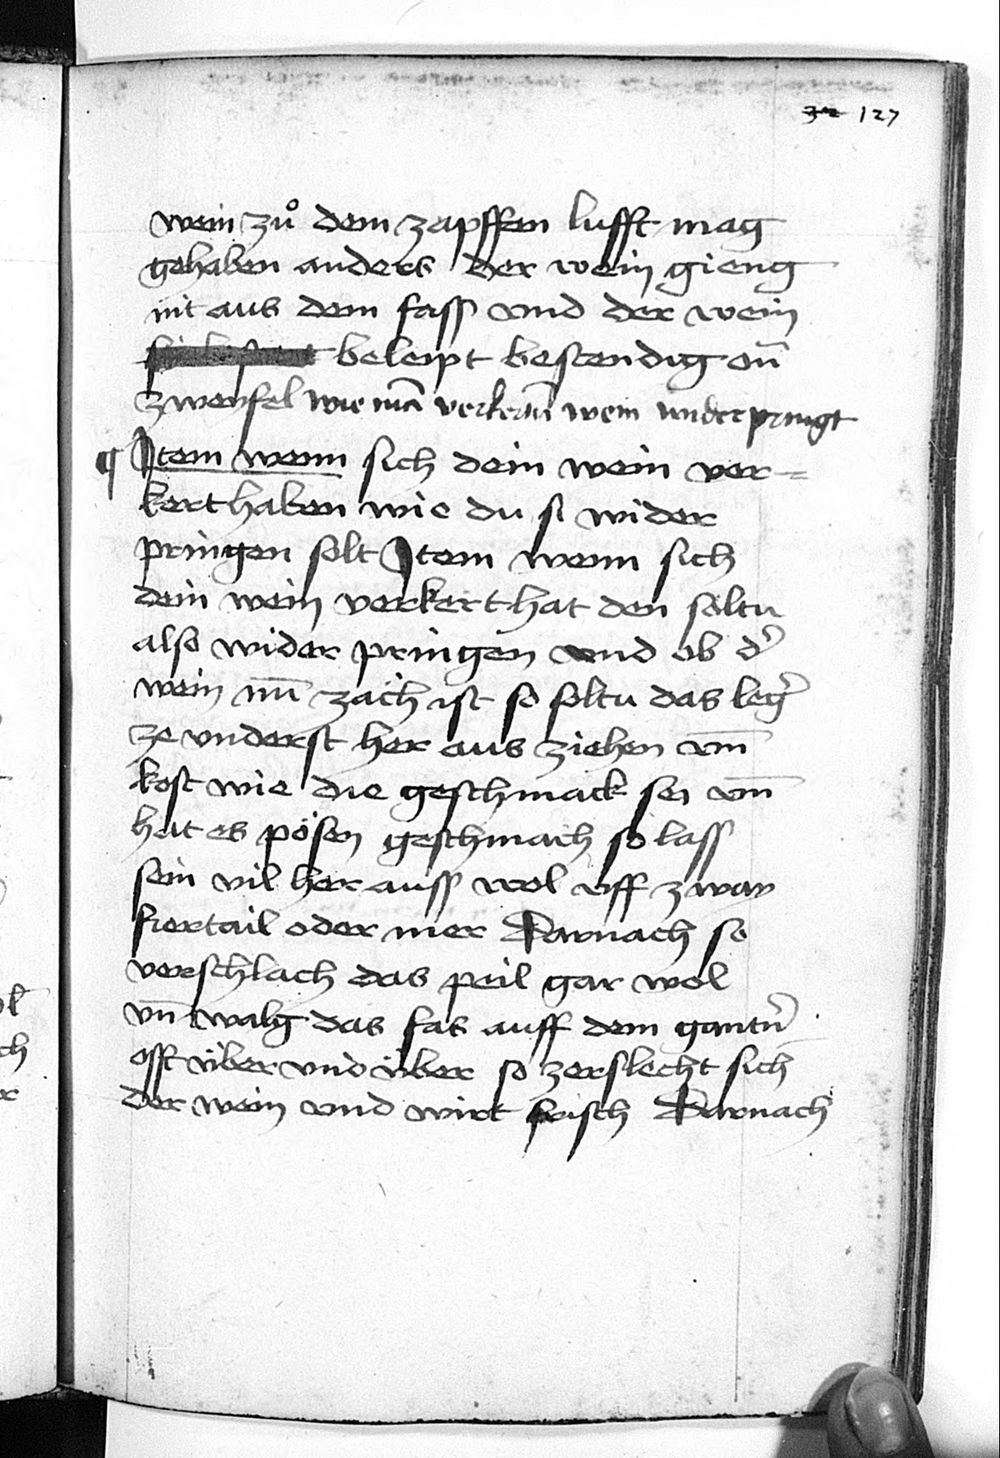 127
wein zů dem zapffen lufft mag
gehaben anders der wein gieng
nit aus dem fass vnd der wein
beleipt bestendig on̄
zweyfel wie mā verkertn̄ wein widerpringt
¶ Item wenn sich dein wein ver-
kert haben wie du si wider
pringen solt Item wenn sich
dein wein verkert hat den soltu
also wider pringen vnd ob d'
wein nū zäch ist so soltu das leg'
ze vnderst her aus ziehen vm̄
kost wie die geschmack sei vm̄
hat es pösen geschmach so lass
sein vil her auss wol vff zway
fiertail oder mer Darnach so
verschlach das peil gar wol
vn̄ walg das fas auff dem gantn'
offt über vnd über so zerslecht sich
der wein vnd wirt frisch Darnach